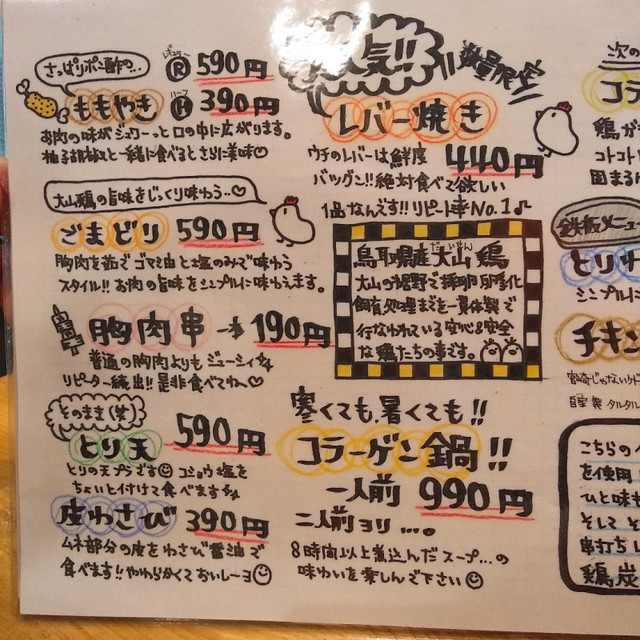 さっぱりポン酢の..
レギュラー
Ⓡ 590円
ももやき
ハーフ
Ⓗ 390円
お肉の味がジュワーっと口の中に広がります。
柚子胡椒と一緒に食べるとさらに美味
大山鶏の旨味をじっくり味わう..♡
ごまどり 590円
胸肉を茹でゴマ油と塩のみで味わう
スタイル!! お肉の旨味をシンプルに味わえます。
胸肉串 一本 190円
普通の胸肉よりもジューシィ
リピーター続出!! 是非食べてね〜♡
そのまま(笑)
とり天 590円
とりの天プラです コショウ塩を
ちょいと付けて食べます
皮わさび 390円
ムネ部分の皮をわさび醤油で
食べます!! やわらかくておいしーヨ
人気!!
数量限定
レバー焼き
ウチのレバーは鮮度 440円
バツグン!! 絶対食べて欲しい
1品なんです!! リピート率No.1♪
鳥取県産大山鶏
だいせん
大山の裾野で採卵孵化
飼育処理までを一貫体制で
行なわれている安心&安全
な鶏たちの事です。
寒くても、暑くても!!
コラーゲン鍋!!
一人前 990円
二人前ヨリ...。
8時間以上煮込んだスープ...の
味わいを楽しんで下さい
次の
コラ
鶏が
コトコト
固まる
鉄板メニュー
とりわ
シンプルに
チキン
自家製タルタル
こちらの
を使用
ひと味も
そして
串打ちし
鶏炭